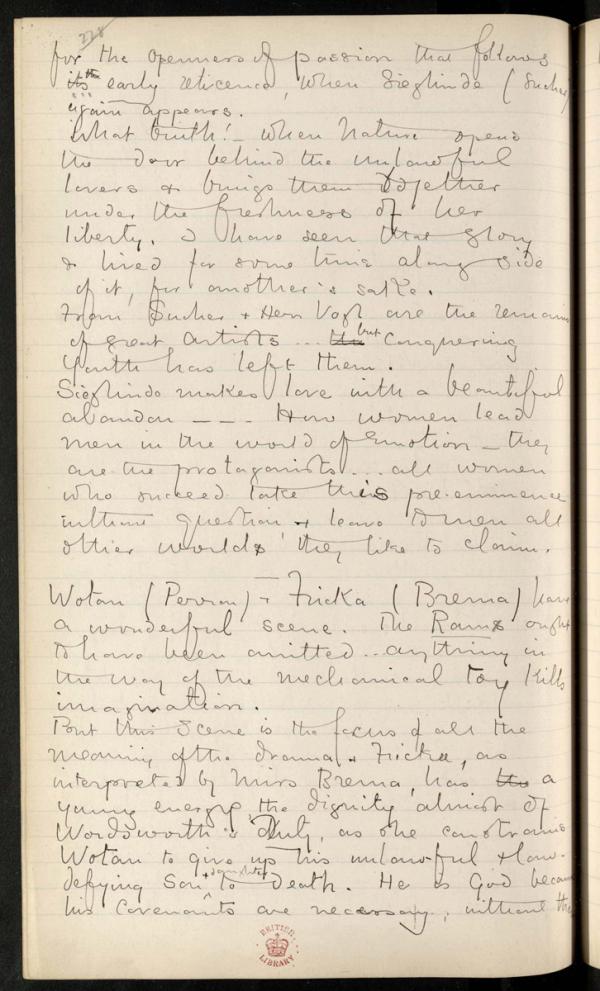 228
for the openness of passion that follows
its the early reticence, when Sieglinde (Sucher)
again appears.
What truth! – when Nature opens
the door behind the unlawful
lovers & brings them together
under the freshness of her
liberty. I have seen that glory
& lived for some time along side
of it, for another's sake.
Frau Sucher & Herr Vogl are the remains
of great artists ... but Conquering
Youth has left them.
Sieglinde makes love with a beautiful
abandon – – – How women lead
men in the world of Emotion – they
are the protagonists ... all women
who succeed take this pre-eminence
without question & leave to men all
other worlds they like to claim.
Wotan (Perron) & Fricka (Brema) have
a wonderful scene. The Rams ought
to have been omitted .. anything in
the way of the mechanical toy kills
imagination.
But this Scene is the focus of all the
meaning of the drama & Fricka, as
interpreted by Miss Brema, has a
young energy, the dignity almost of
Wordsworth's Duty, as she constrains
Wotan to give up his unlawful & law-
defying Son & daughter to Death. He is God because
his Covenants are necessary; without the
BRITISH LIBRARY